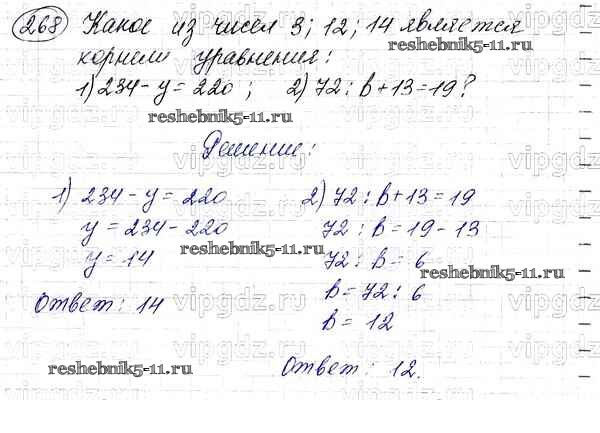 268 Какое из чисел 3; 12; 14 является
reshebnik5-11.ru
корнем уравнения:
1) 234 - y = 220 ; 2) 72 : b + 13 = 19?
reshebnik5-11.ru
vipgdz.ru
Решение:
1) 234 - y = 220
y = 234 - 220
y = 14
Ответ: 14
reshebnik5-11.ru
2) 72 : b + 13 = 19
72 : b = 19 - 13
72 : b = 6
b = 72 : 6
b = 12
Ответ: 12.
reshebnik5-11.ru
reshebnik5-11.ru